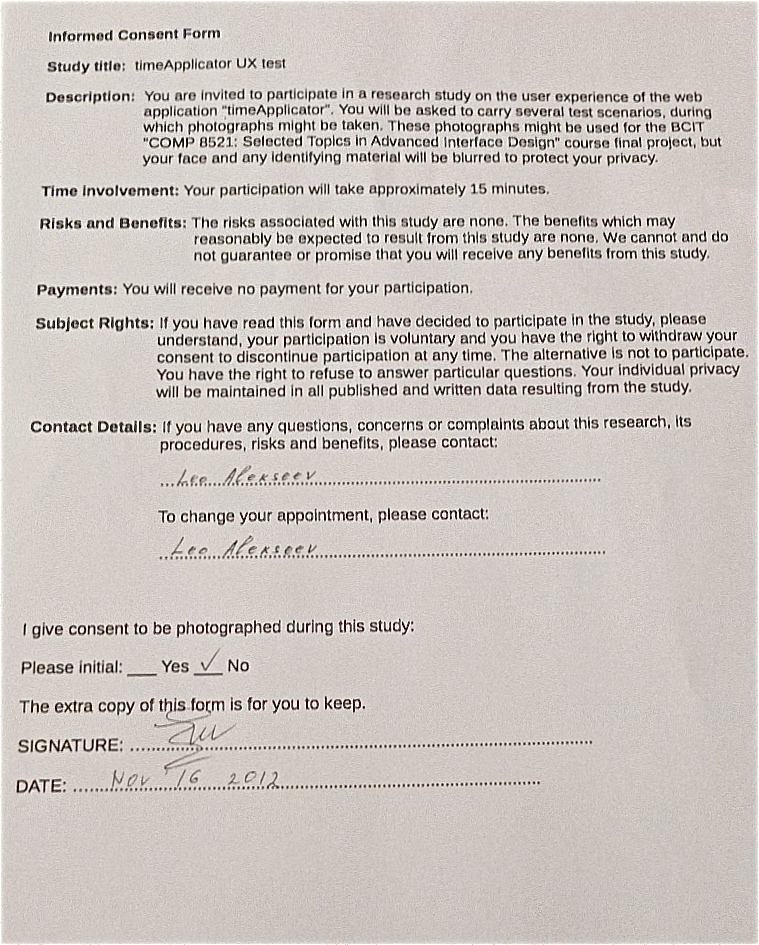 Informed Consent Form
Study title: timeApplicator UX test
Description: You are invited to participate in a research study on the user experience of the web
application "timeApplicator". You will be asked to carry several test scenarios, during
which photographs might be taken. These photographs might be used for the BCIT
"COMP 8521: Selected Topics in Advanced Interface Design" course final project, but
your face and any identifying material will be blurred to protect your privacy.
Time involvement: Your participation will take approximately 15 minutes.
Risks and Benefits: The risks associated with this study are none. The benefits which may
reasonably be expected to result from this study are none. We cannot and do
not guarantee or promise that you will receive any benefits from this study.
Payments: You will receive no payment for your participation.
Subject Rights: If you have read this form and have decided to participate in the study, please
understand, your participation is voluntary and you have the right to withdraw your
consent to discontinue participation at any time. The alternative is not to participate.
You have the right to refuse to answer particular questions. Your individual privacy
will be maintained in all published and written data resulting from the study.
Contact Details: If you have any questions, concerns or complaints about this research, its
procedures, risks and benefits, please contact:
Leo Alekseev
To change your appointment, please contact:
Leo Alekseev
I give consent to be photographed during this study:
Please initial: ___ Yes ✓ No
The extra copy of this form is for you to keep.
SIGNATURE:
DATE: Nov 16 2012